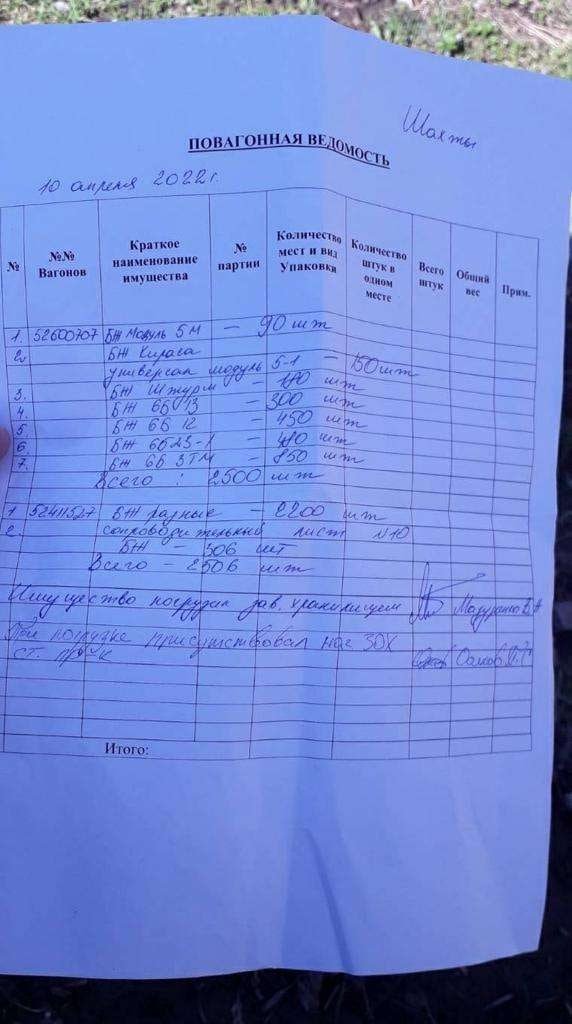 Шахты
ПОВАГОННАЯ ВЕДОМОСТЬ
10 апреля 2022г.
№ №№ Вагонов Краткое наименование имущества № партии Количество мест и вид Упаковки Количество штук в одном месте Всего штук Общий вес Прим.
1. 52600707 БЖ Модуль 5М – 90 шт
2. БЖ Кираса
универсал модуль 5-1 – 150 шт
3. БЖ Штурм – шт
4. БЖ 6Б13 – 300 шт
5 БЖ 6Б12 – 450 шт
6. БЖ 6Б23-1 – шт
7. БЖ 6Б 3ТМ – 850 шт
Всего : 2500 шт
1 52411527 БЖ разные – 2200 шт
2. сопроводительный лист №10
БЖ – 306 шт
Всего – 2506 шт
Имущество погрузил зав. хранилищем
При погрузке присутствовал нас ЗОХ
ст. пр-к
Итого: